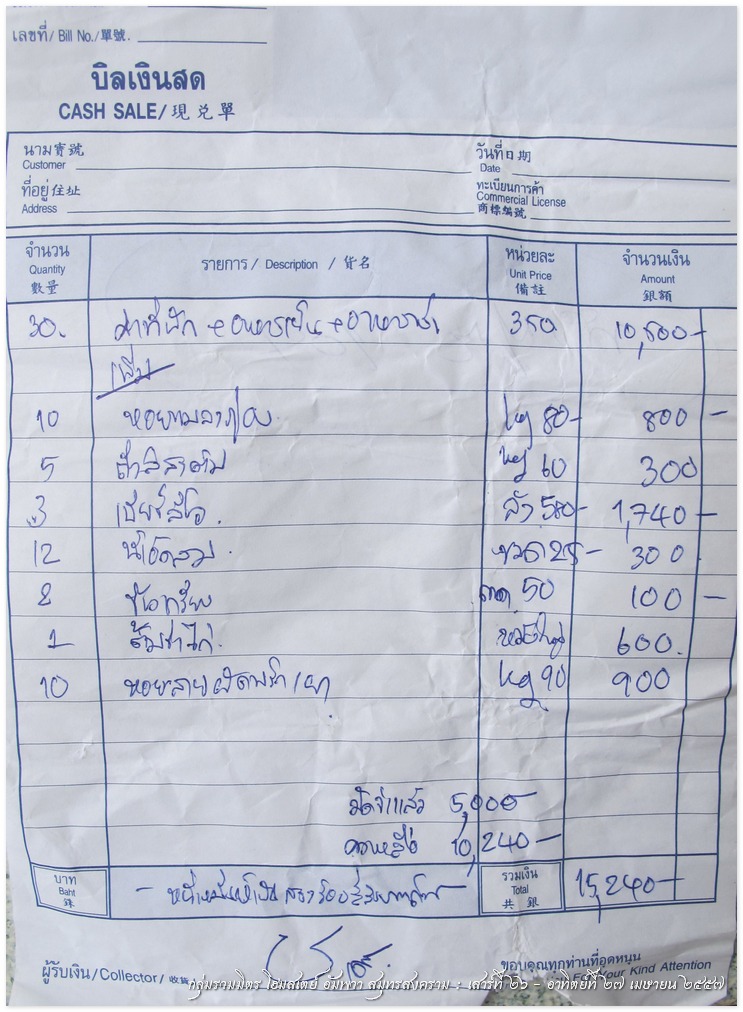 เลขที่/ Bill No./單號.
บิลเงินสด
CASH SALE/現兑單
นาม賣號
Customer
วันที่日期
Date
ที่อยู่住址
Address
ทะเบียนการค้า
Commercial License
商標編號
จำนวน
Quantity
數量
รายการ / Description / 貨名
หน่วยละ
Unit Price
備註
จำนวนเงิน
Amount
銀額
30. ค่าที่พัก + อาหารเย็น + อาหารเช้า 350 10,500-
เพิ่ม
10 หอยแมลงภู่ kg 80- 800 -
5 kg 60 300
3 เบียร์ลีโอ. ลัง 580- 1,740 -
12 ขวด 25- 300
2 ถาด 50 100 -
1 ต้มข่าไก่. หม้อใหญ่ 600.
10 หอยลายผัดพริกเผา kg 90 900
มัดจำแล้ว 5,000-
คงเหลือ 10,240-
บาท
Baht
銖
- หนึ่งหมื่นห้าพันสองร้อยสี่สิบบาทถ้วน -
รวมเงิน
Total
共銀
15,240-
ผู้รับเงิน/Collector/
ขอบคุณทุกท่านที่อุดหนุน
Your Kind Attention
กลุ่มรวมมิตร โฮมสเตย์ อัมพวา สมุทรสงคราม : เสาร์ที่ ๒๖ - อาทิตย์ที่ ๒๗ เมษายน ๒๕๕๗